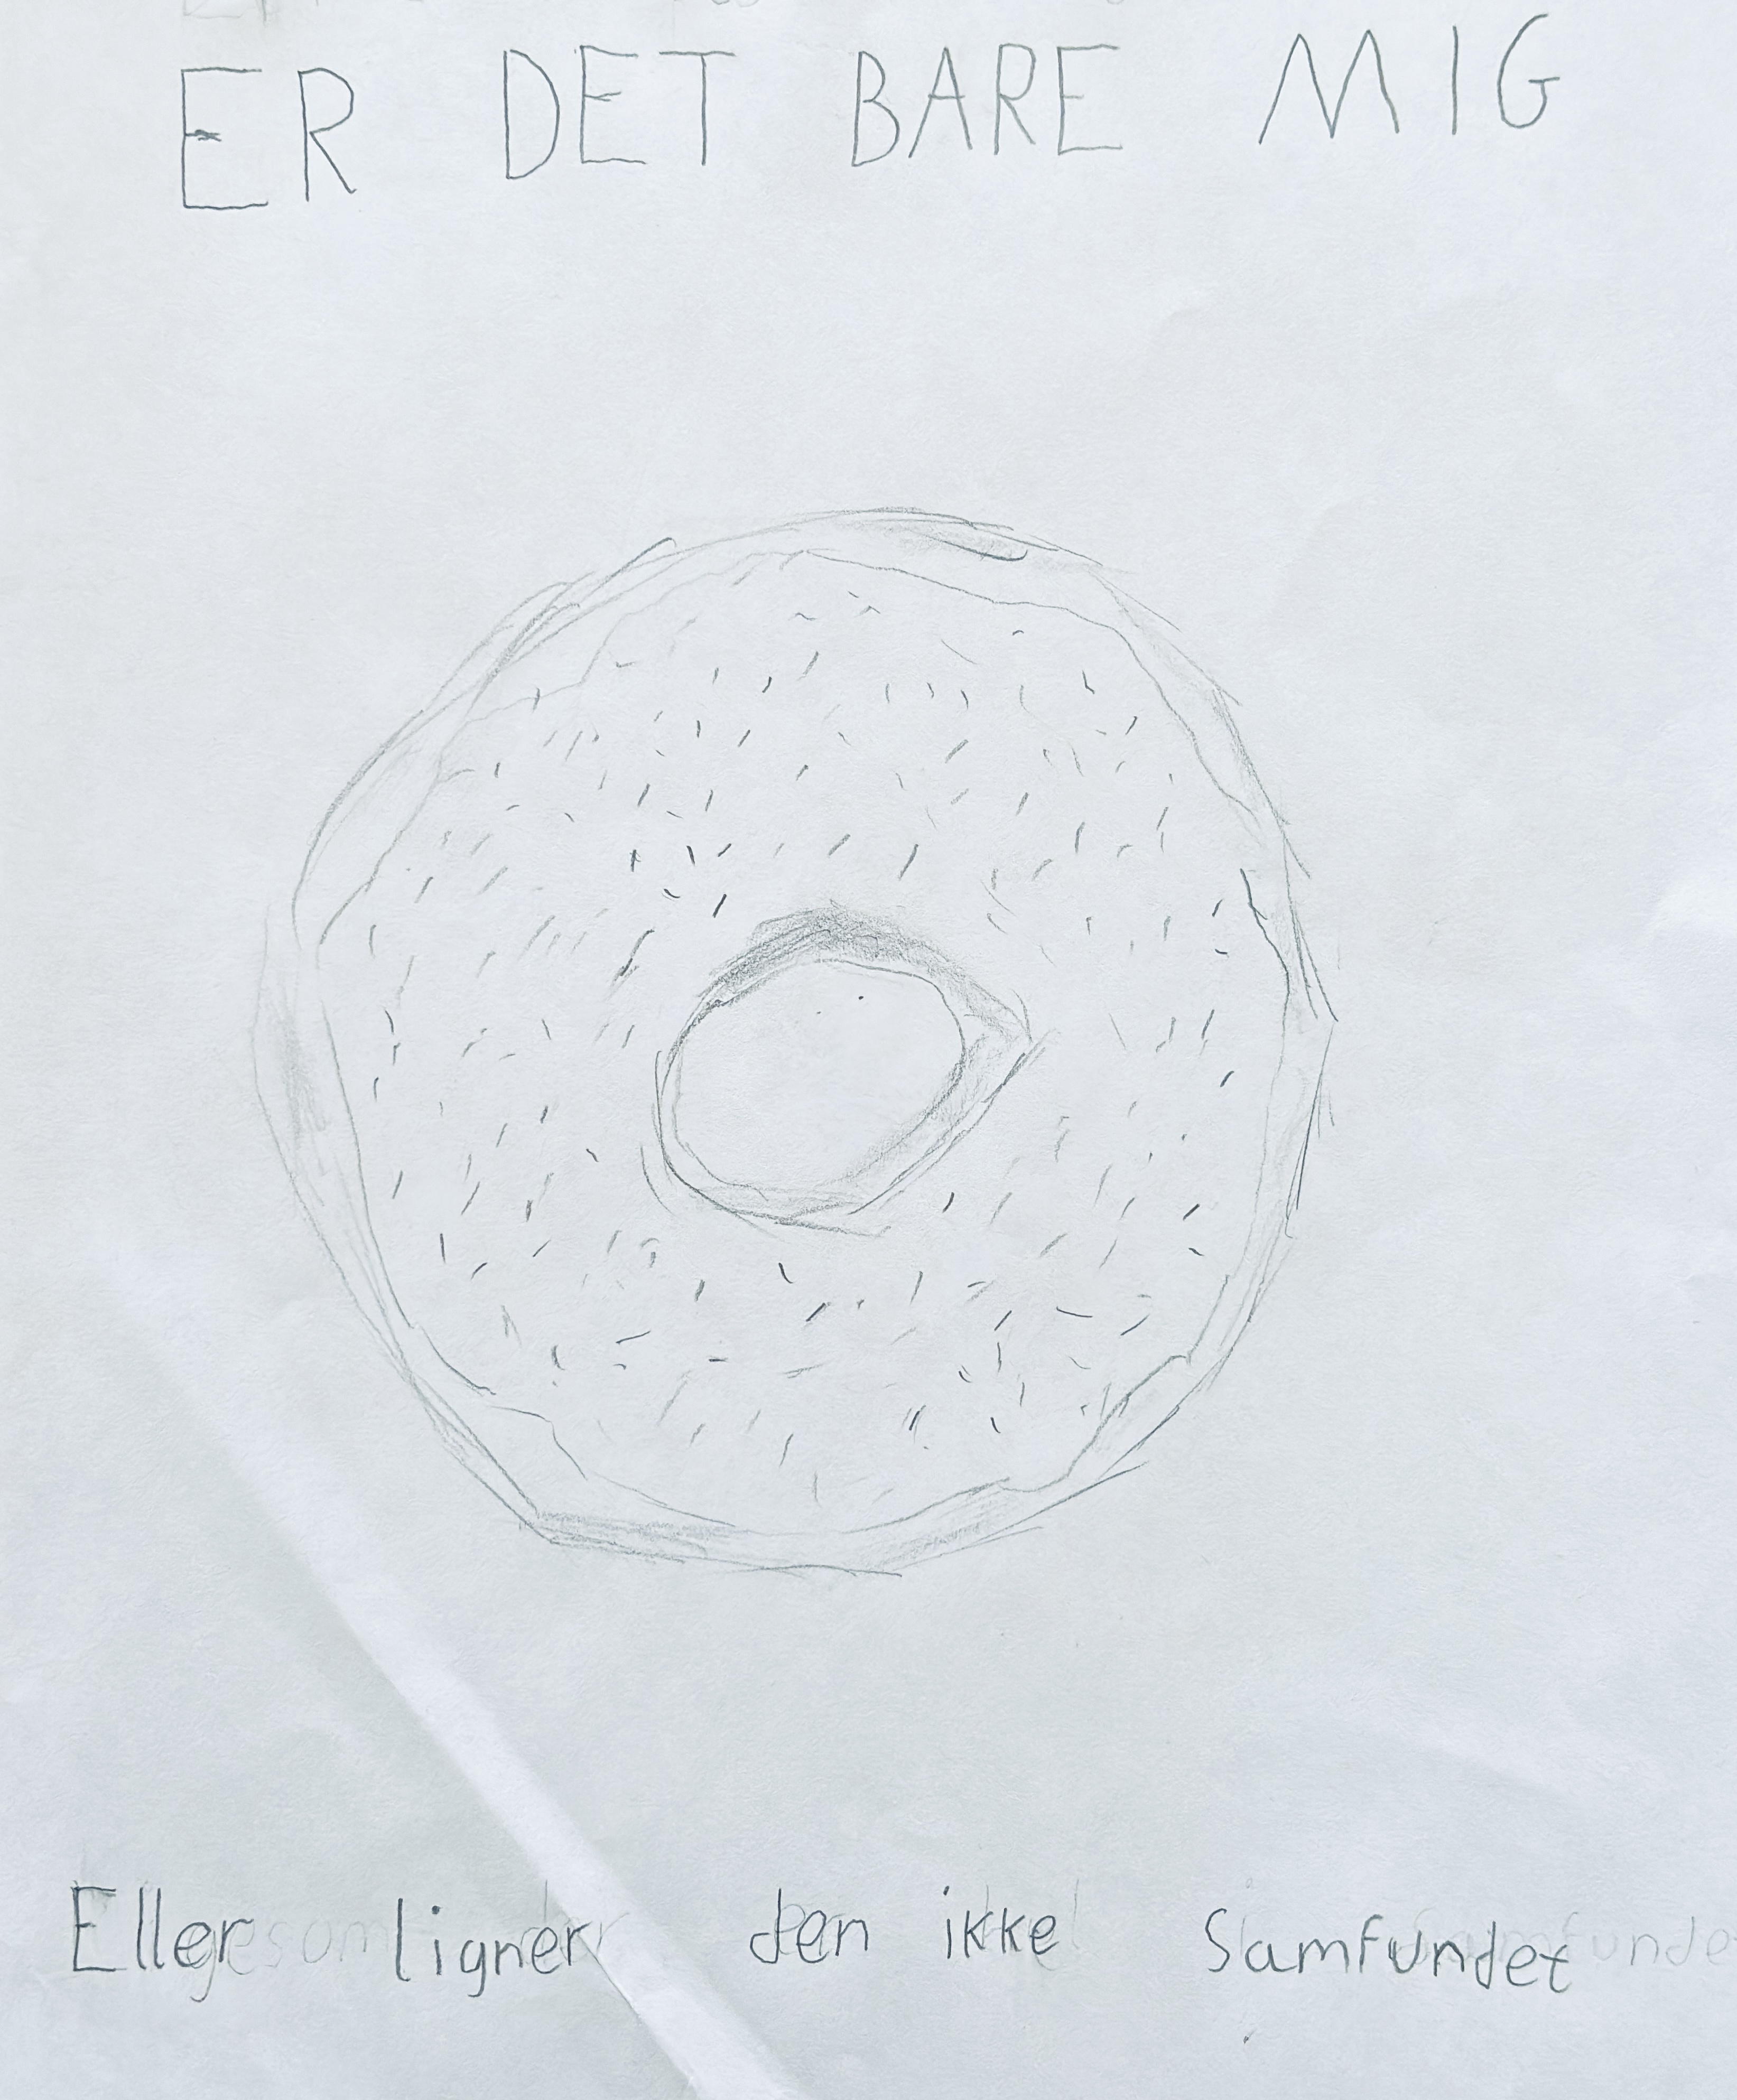 ER DET BARE MIG
Eller ligner den ikke Samfundet